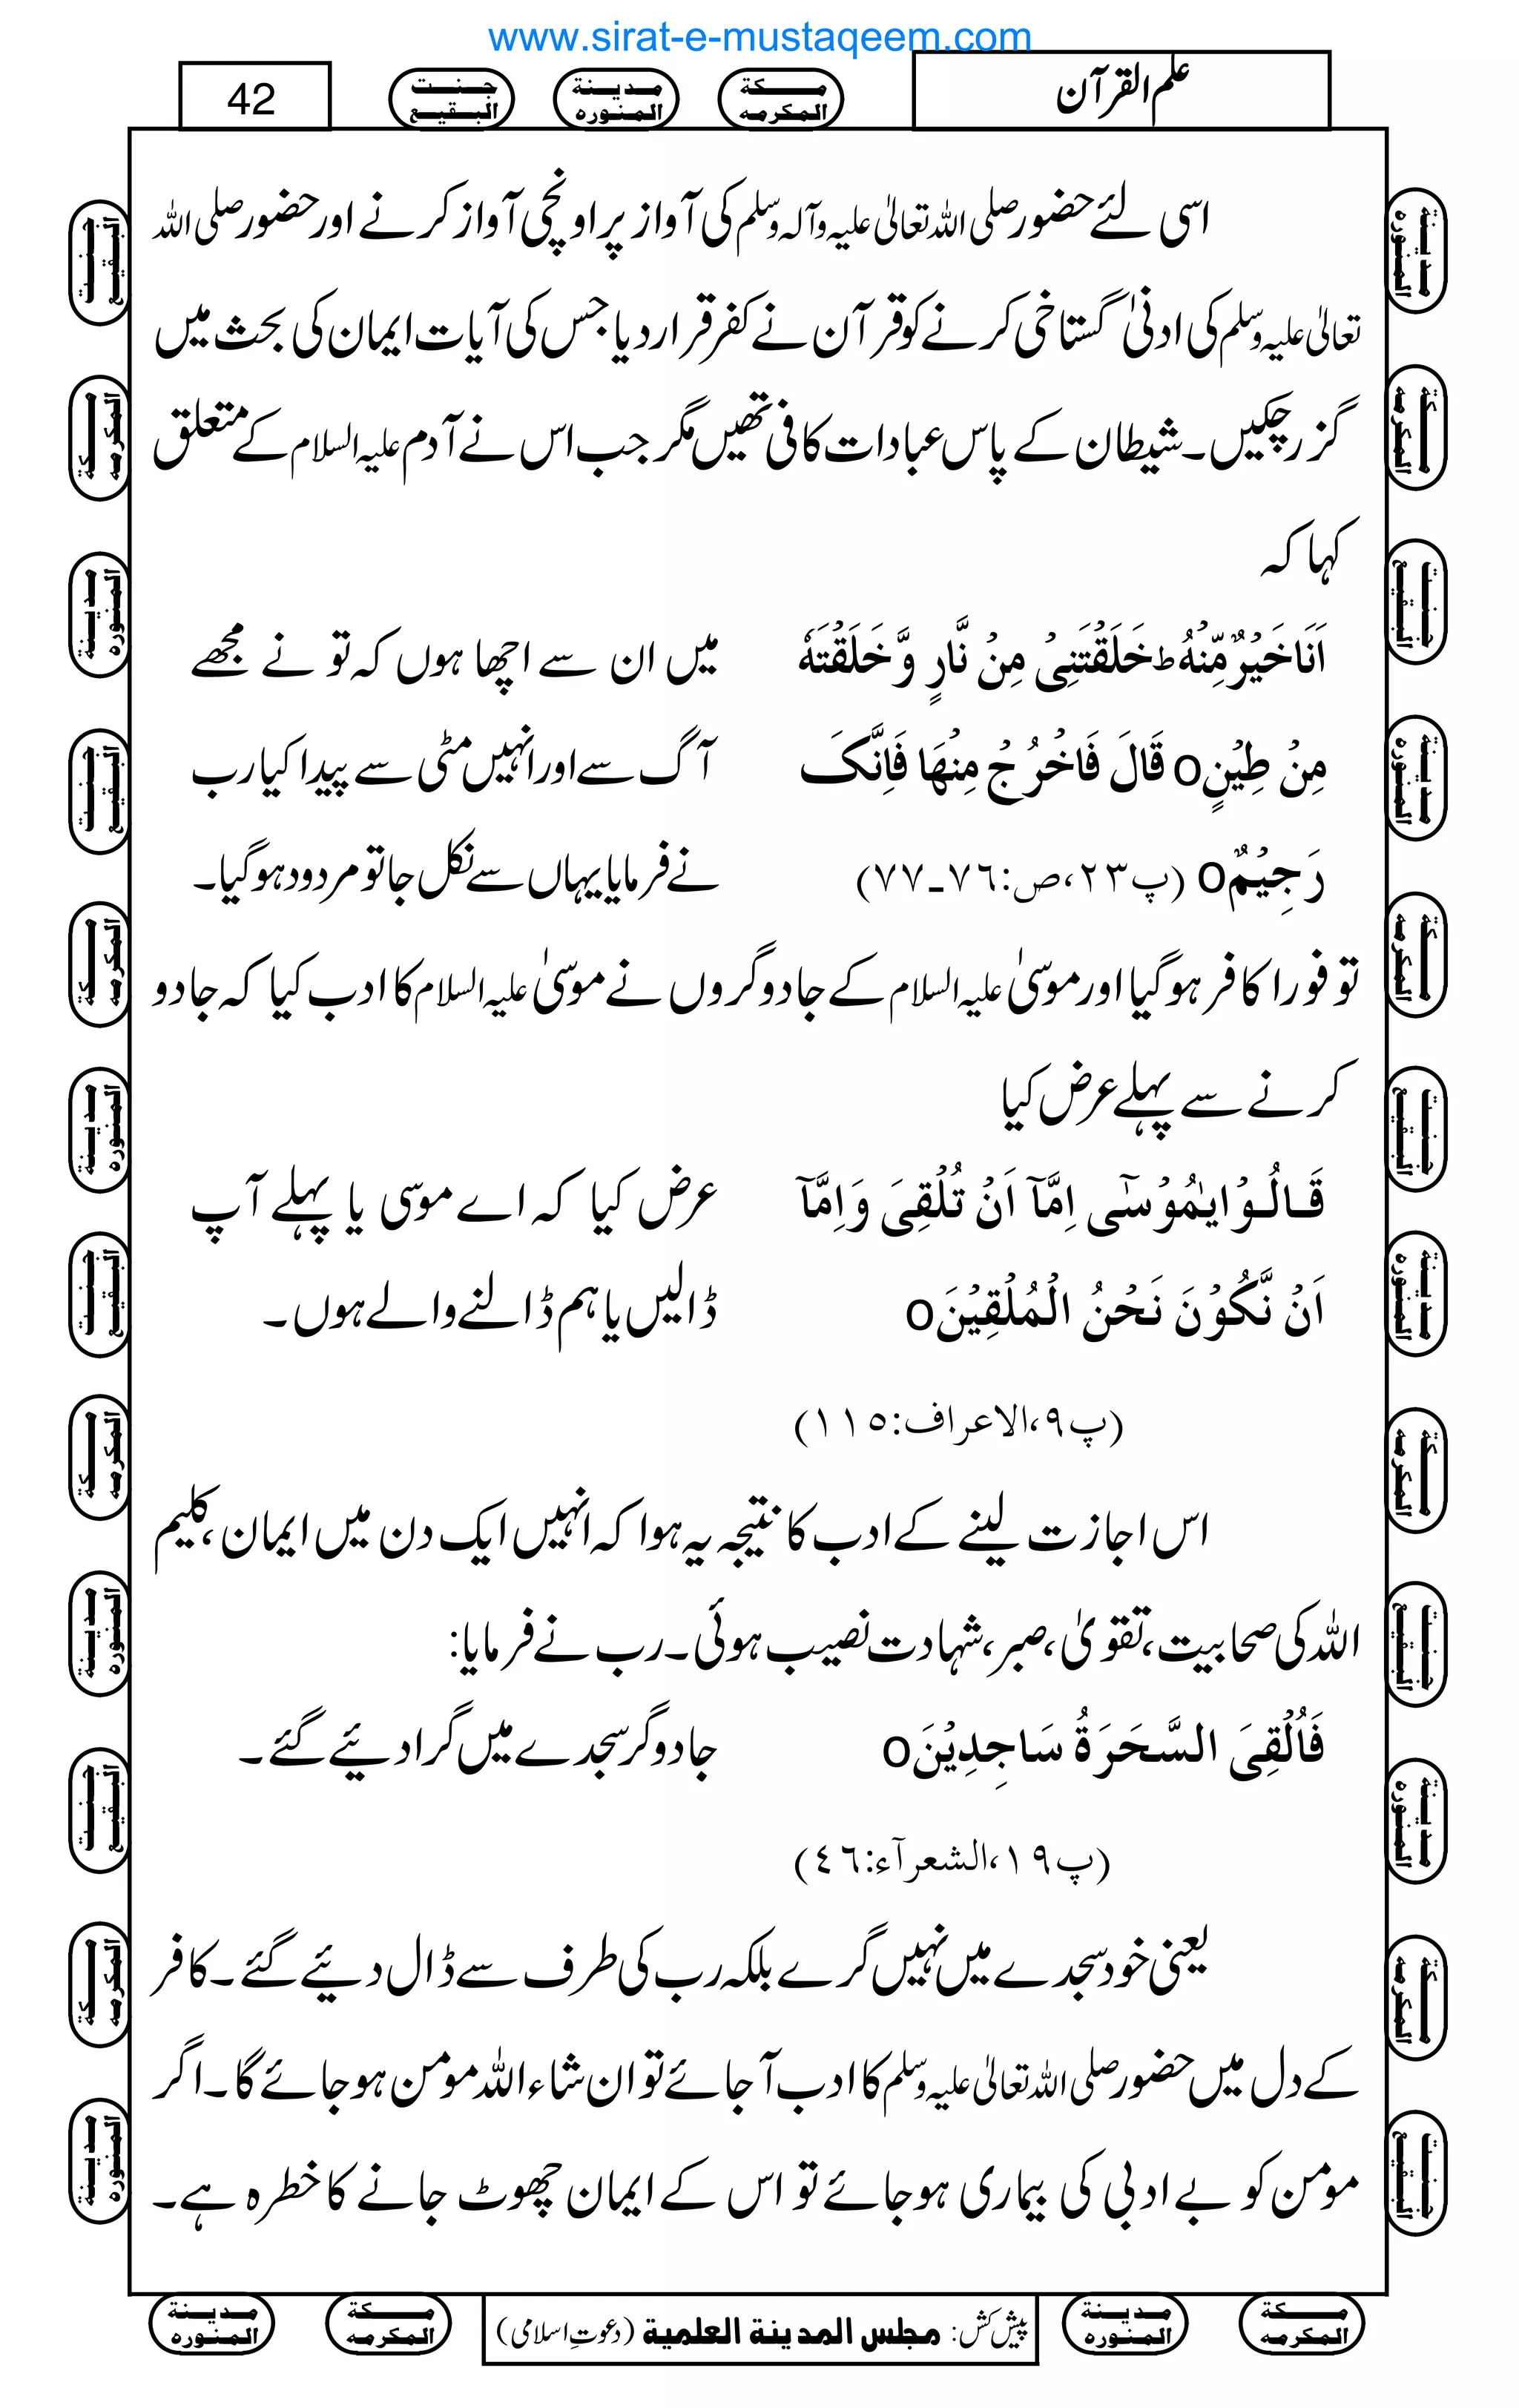 www.sirat-e-mustaqeem.com
علم القرآن
مكة المكرمه
مدينة المنوره
جنت البقيع
42
اسی لئے حضور صلی اللہ تعالیٰ علیہ وآلہ وسلم کی آواز پر اونچی آواز کرنے اور حضور صلی اللہ
تعالیٰ علیہ وسلم کی ادنیٰ گستاخی کرنے کو قرآن نے کفر قرار دیا جس کی آیات ایمان کی بحث میں
گزر چکیں۔ شیطان کے پاس عبادات کافی تھیں مگر جب اس نے آدم علیہ السلام کے متعلق
کہا کہ
اَنَا خَیْرٌ مِّنْهُ ط خَلَقْتَنِیْ مِنْ نَّارٍ وَّ خَلَقْتَهٗ
میں ان سے اچھا ہوں کہ تو نے مجھے
مِنْ طِیْنٍo قَالَ فَاخْرُجْ مِنْهَا فَاِنَّکَ
آگ سے اور انہیں مٹی سے پیدا کیا رب
رَجِیْمٌo (پ٢٣،ص:٧٦۔٧٧)
نے فرمایا یہاں سے نکل جا تو مردود ہوگیا۔
تو فورا کافر ہوگیا اور موسیٰ علیہ السلام کے جادوگروں نے موسیٰ علیہ السلام کا ادب کیا کہ جادو
کرنے سے پہلے عرض کیا
قَالُوْا یٰمُوْسٰٓی اِمَّآ اَنْ تُلْقِیَ وَ اِمَّآ
عرض کیا کہ اے موسی یا پہلے آپ
اَنْ نَّکُوْنَ نَحْنُ الْمُلْقِیْنَo
ڈالیں یا ہم ڈالنے والے ہوں۔
(پ٩،الاعراف:١١٥)
اس اجازت لینے کے ادب کا نتیجہ یہ ہوا کہ انہیں ایک دن میں ایمان، کلیم
اللہ کی صحابیت، تقویٰ، صبر، شہادت نصیب ہوئی۔ رب نے فرمایا:
فَاُلْقِیَ السَّحَرَةُ سَاجِدِیْنَo
جادوگر سجدے میں گرا دیئے گئے۔
(پ١٩،الشعرآء:٤٦)
یعنی خود سجدے میں نہیں گرے بلکہ رب کی طرف سے ڈال دیئے گئے۔ کافر
کے دل میں حضور صلی اللہ تعالیٰ علیہ وسلم کا ادب آجائے تو ان شاء اللہ مومن ہوجائے گا۔ اگر
مومن کو بے ادبی کی بیماری ہوجائے تو اس کے ایمان چھوٹ جانے کا خطرہ ہے۔
مكة المكرمه
مدينة المنوره
پیش کش: مجلس المدينة العلمية (دعوتِ اسلامی)
مكة المكرمه
مدينة المنوره